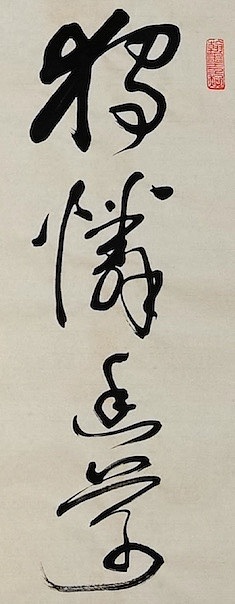 獨憐幽草